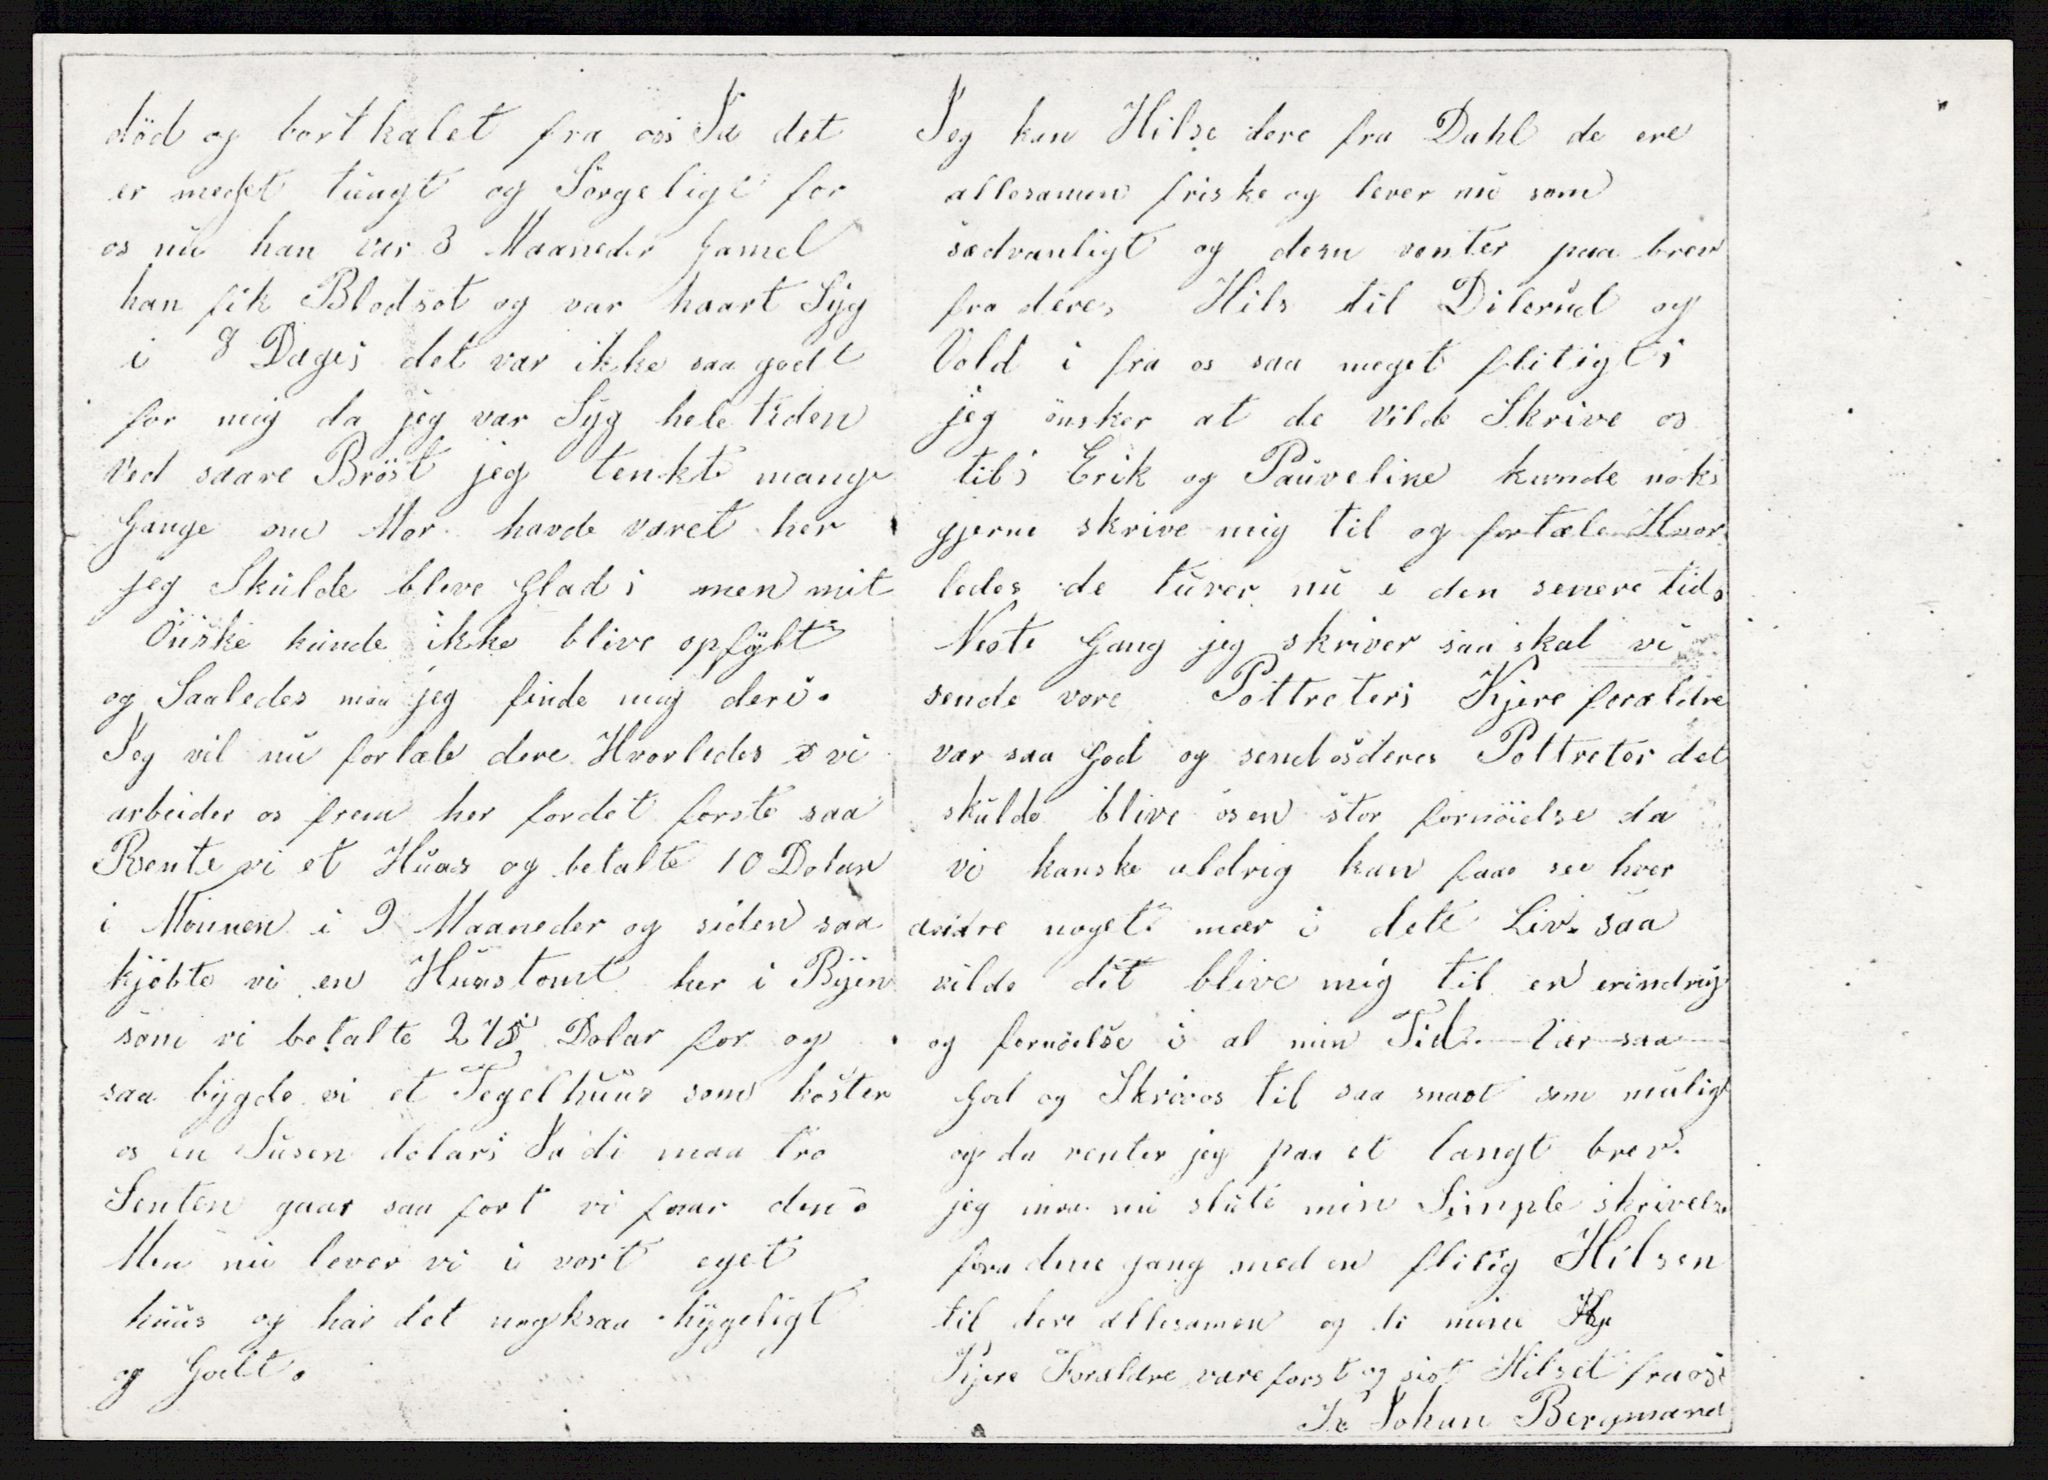 död og bortkalet fra oss Ja det
er meget tungt og Sörgeligt for
os nu han var 3 Maaneder Gamel
han fik Blodsot og var haart Syg
i 8 Dage; det var ikke saa godt
for mig da jeg var Syg hele tiden
Ved saare Bröst jeg tenkte mange
Gange om Mor havde været her
jeg Skulde bleve Glad; men mit
Önske kunde ikke blive opfylt
og Saaledes maa jeg finde mig deri.
Jeg vil nu fortæle dere Hvorledes vi
arbeider os frem her fordet förste saa
Rente vi et Huus og betalte 10 Dolar
i Monnen i 9 Maaneder og siden saa
kjöbte vi en Huustomt her i Byen
som vi betalte 275 Dolar for og
saa bygde vi et Tegelhuus som koster
os en Tusen dolar; Ja di maa tro
Senten gaar saa fort vi faar den.
Men nu lever vi i vort eget
huus og har det nogksaa hygeligt
og Godt.
Jeg kan Hilse dere fra Dahl de ere
allesamen friske og lever nu som
sædvanligt og dem venter paa brev
fra dere, Hils til Dilerud og
Vold i fra os saa meget flitigt;
jeg önsker at de vilde Skrive os
til; Erik og Pauveline kunde nok
gjerne skrive mig til og fortæle Hvor
ledes de turer nu i den senere tid.
Neste Gang jeg skriver saa skal vi
sende vore Pottreter; Kjere forældre
vær saa God og send os deres Pottreter det
skulde blive os en stor fornöielse da
vi kanske aldrig kan faa see hver
andre noget mær i dete Liv. saa
vilde dit blive mig til en erindrig
og fornöielse i al min Tid. Vær saa
God og Skriv os til saa snart som muligt
og da venter jeg paa et langt brev.
jeg maa nu slute min Simple skrivelse
fora dene gang med en flitig Hilsen
til dere allesamen og di mine Kje
Kjere Forældre være först og sist Hilset fra os;
Johan Bergmand